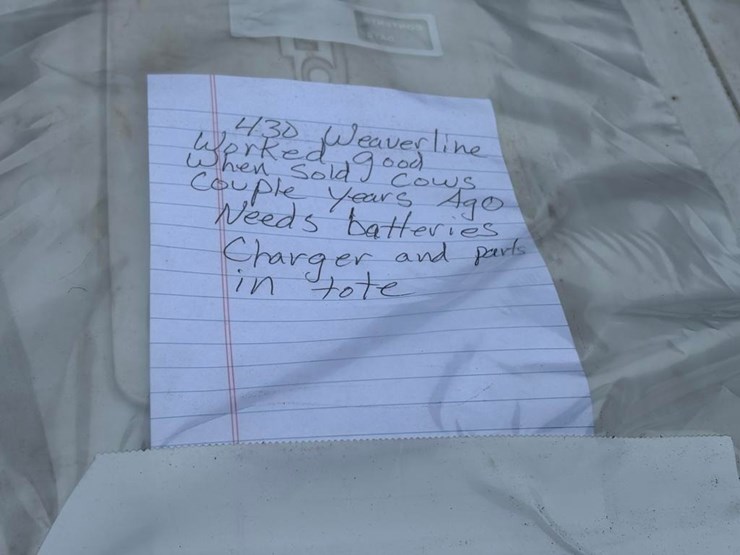 430 Weaverline
Worked good
When sold cows
Couple years Ago
Needs batteries
Charger and parts
in tote